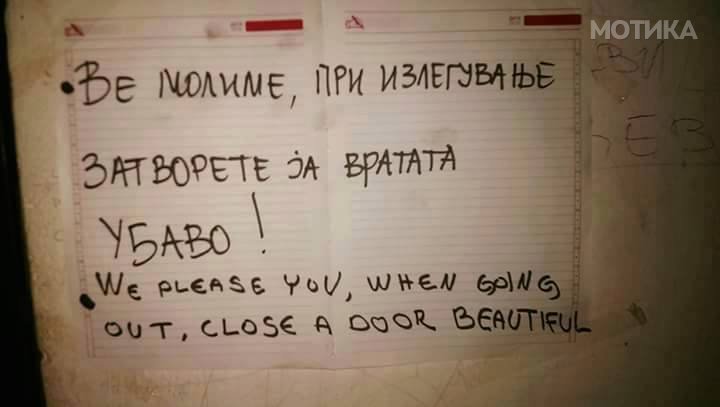 МОТИКА
• ВЕ МОЛИМЕ, ПРИ ИЗЛЕГУВАЊЕ
ЗАТВОРЕТЕ ЈА ВРАТАТА
УБАВО!
• WE PLEASE YOU, WHEN GOING
OUT, CLOSE A DOOR BEAUTIFUL